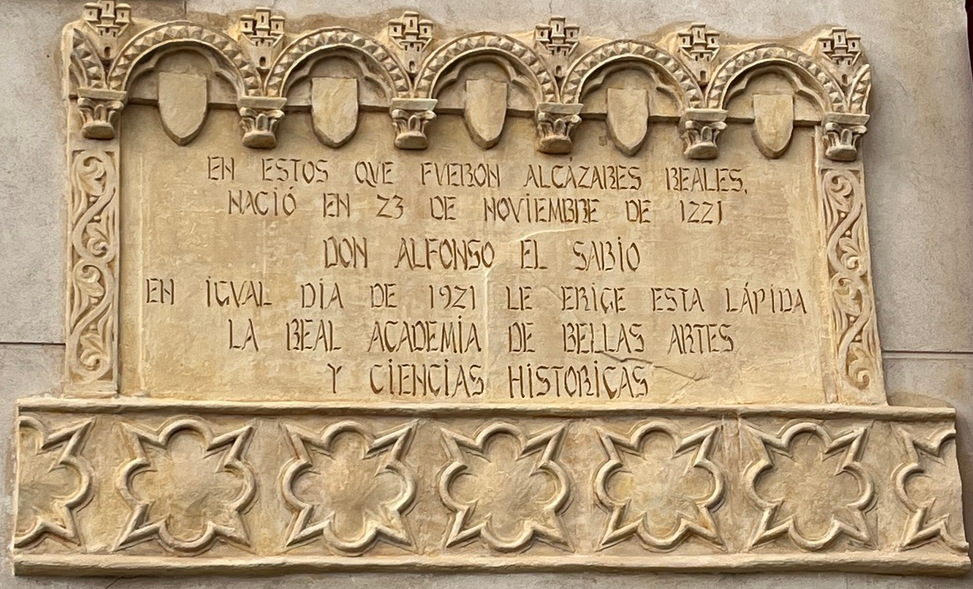 EN ESTOS QVE FVERON ALCÁZARES REALES,
NACIÓ EN 23 DE NOVIEMBRE DE 1221
DON ALFONSO EL SABIO
EN IGVAL DÍA DE 1921 LE ERIGE ESTA LÁPIDA
LA REAL ACADEMIA DE BELLAS ARTES
Y CIENCIAS HISTORICAS